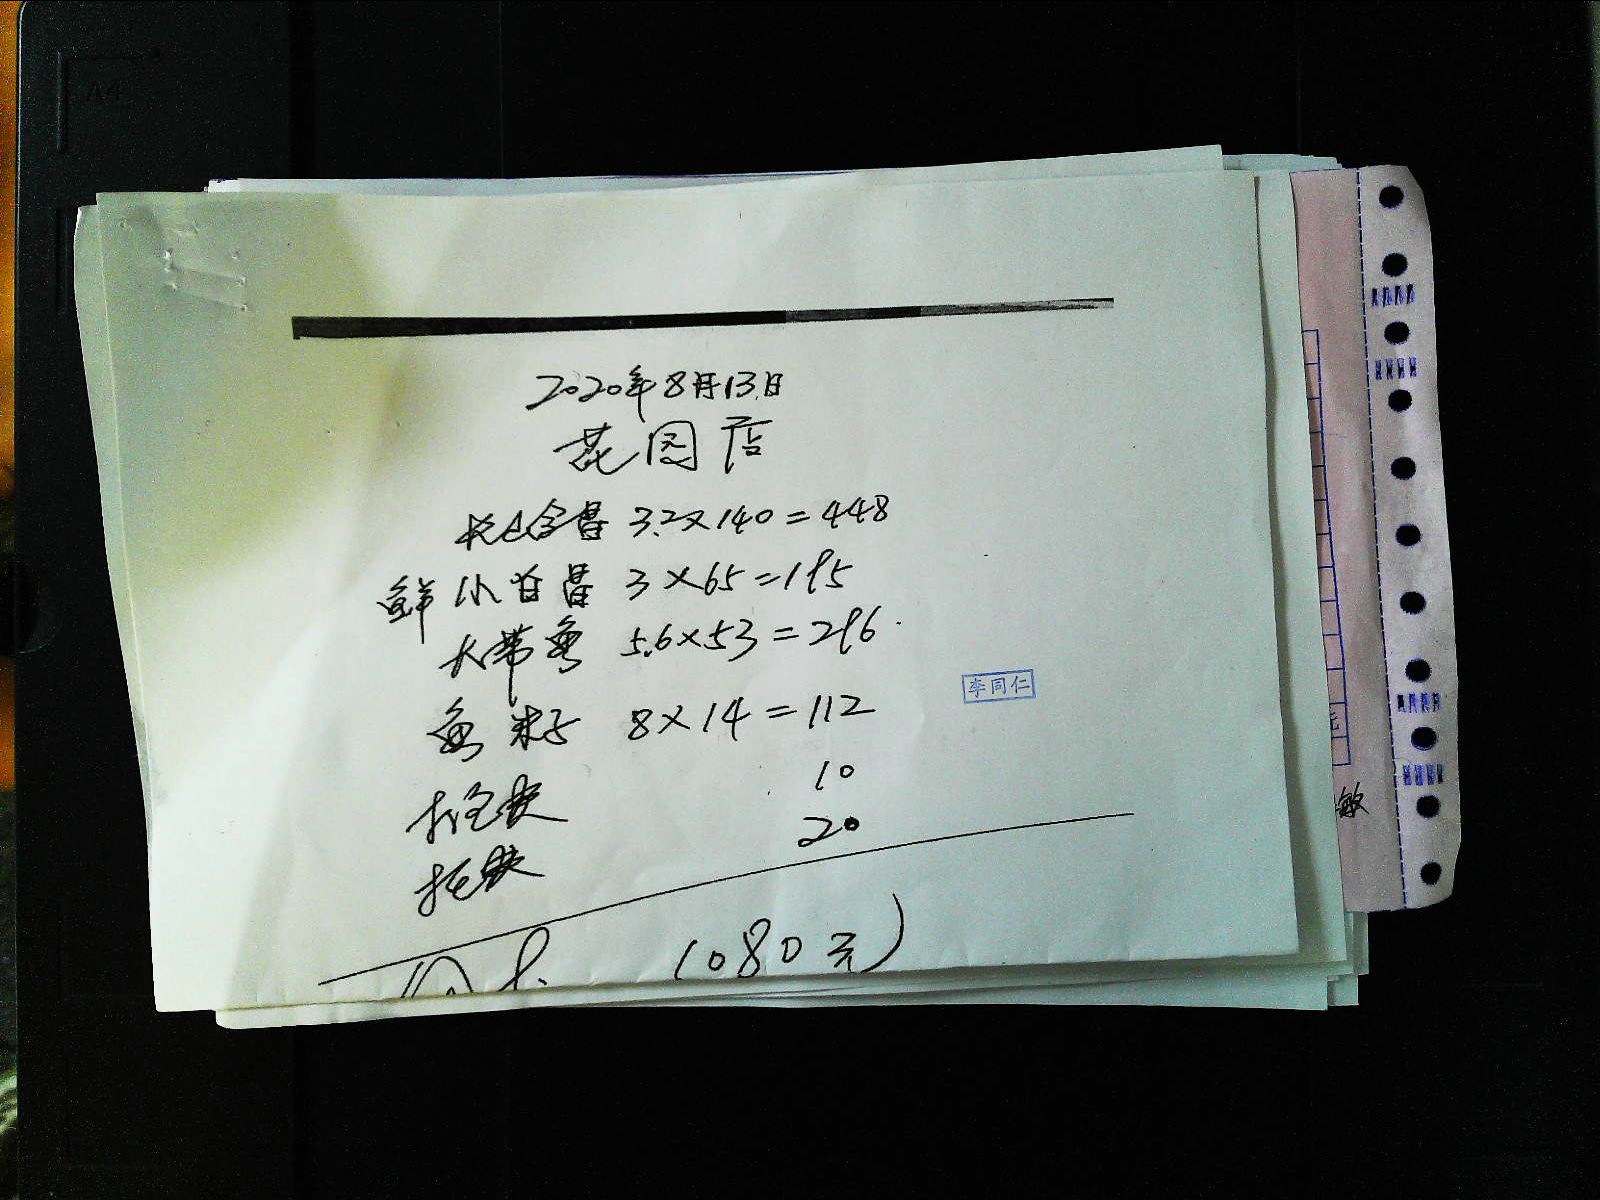 2020年8月13日
花园店
3.2×140=448
鲜小白昌 3×65=195
大带鱼 5.6×53=296
李同仁
鱼籽 8×14=112
10
20
1080元
敏
A4